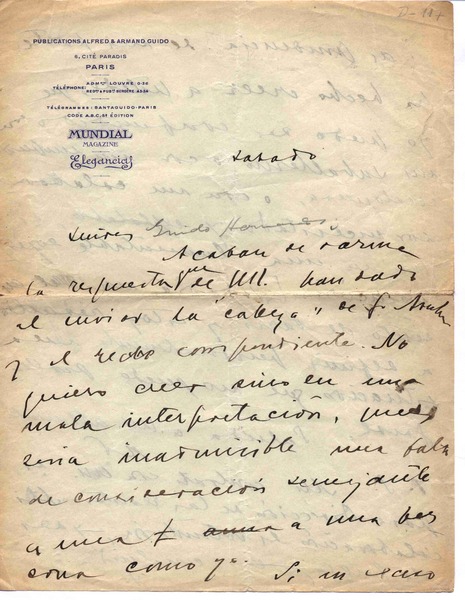 D-117
PUBLICATIONS ALFRED & ARMAND GUIDO
6, CITÉ PARADIS
PARIS
TÉLÉPHONE:
ADMon LOUVRE 0-34
TÉLÉGRAMMES: SANTAGUIDO-PARIS
CODE A.B.C. 5e ÉDITION
MUNDIAL
MAGAZINE
Elegancias
sabado
Señores Guido Hermanos,
Acaban de darme
la respuesta que UU. han dado
al enviar la "cabeza" de
y el recibo correspondiente. No
quiero creer sino en una
mala interpretación, pues
seria inadmisible una falta
de consideración semejante
a una per
sona como yo. Si en caso